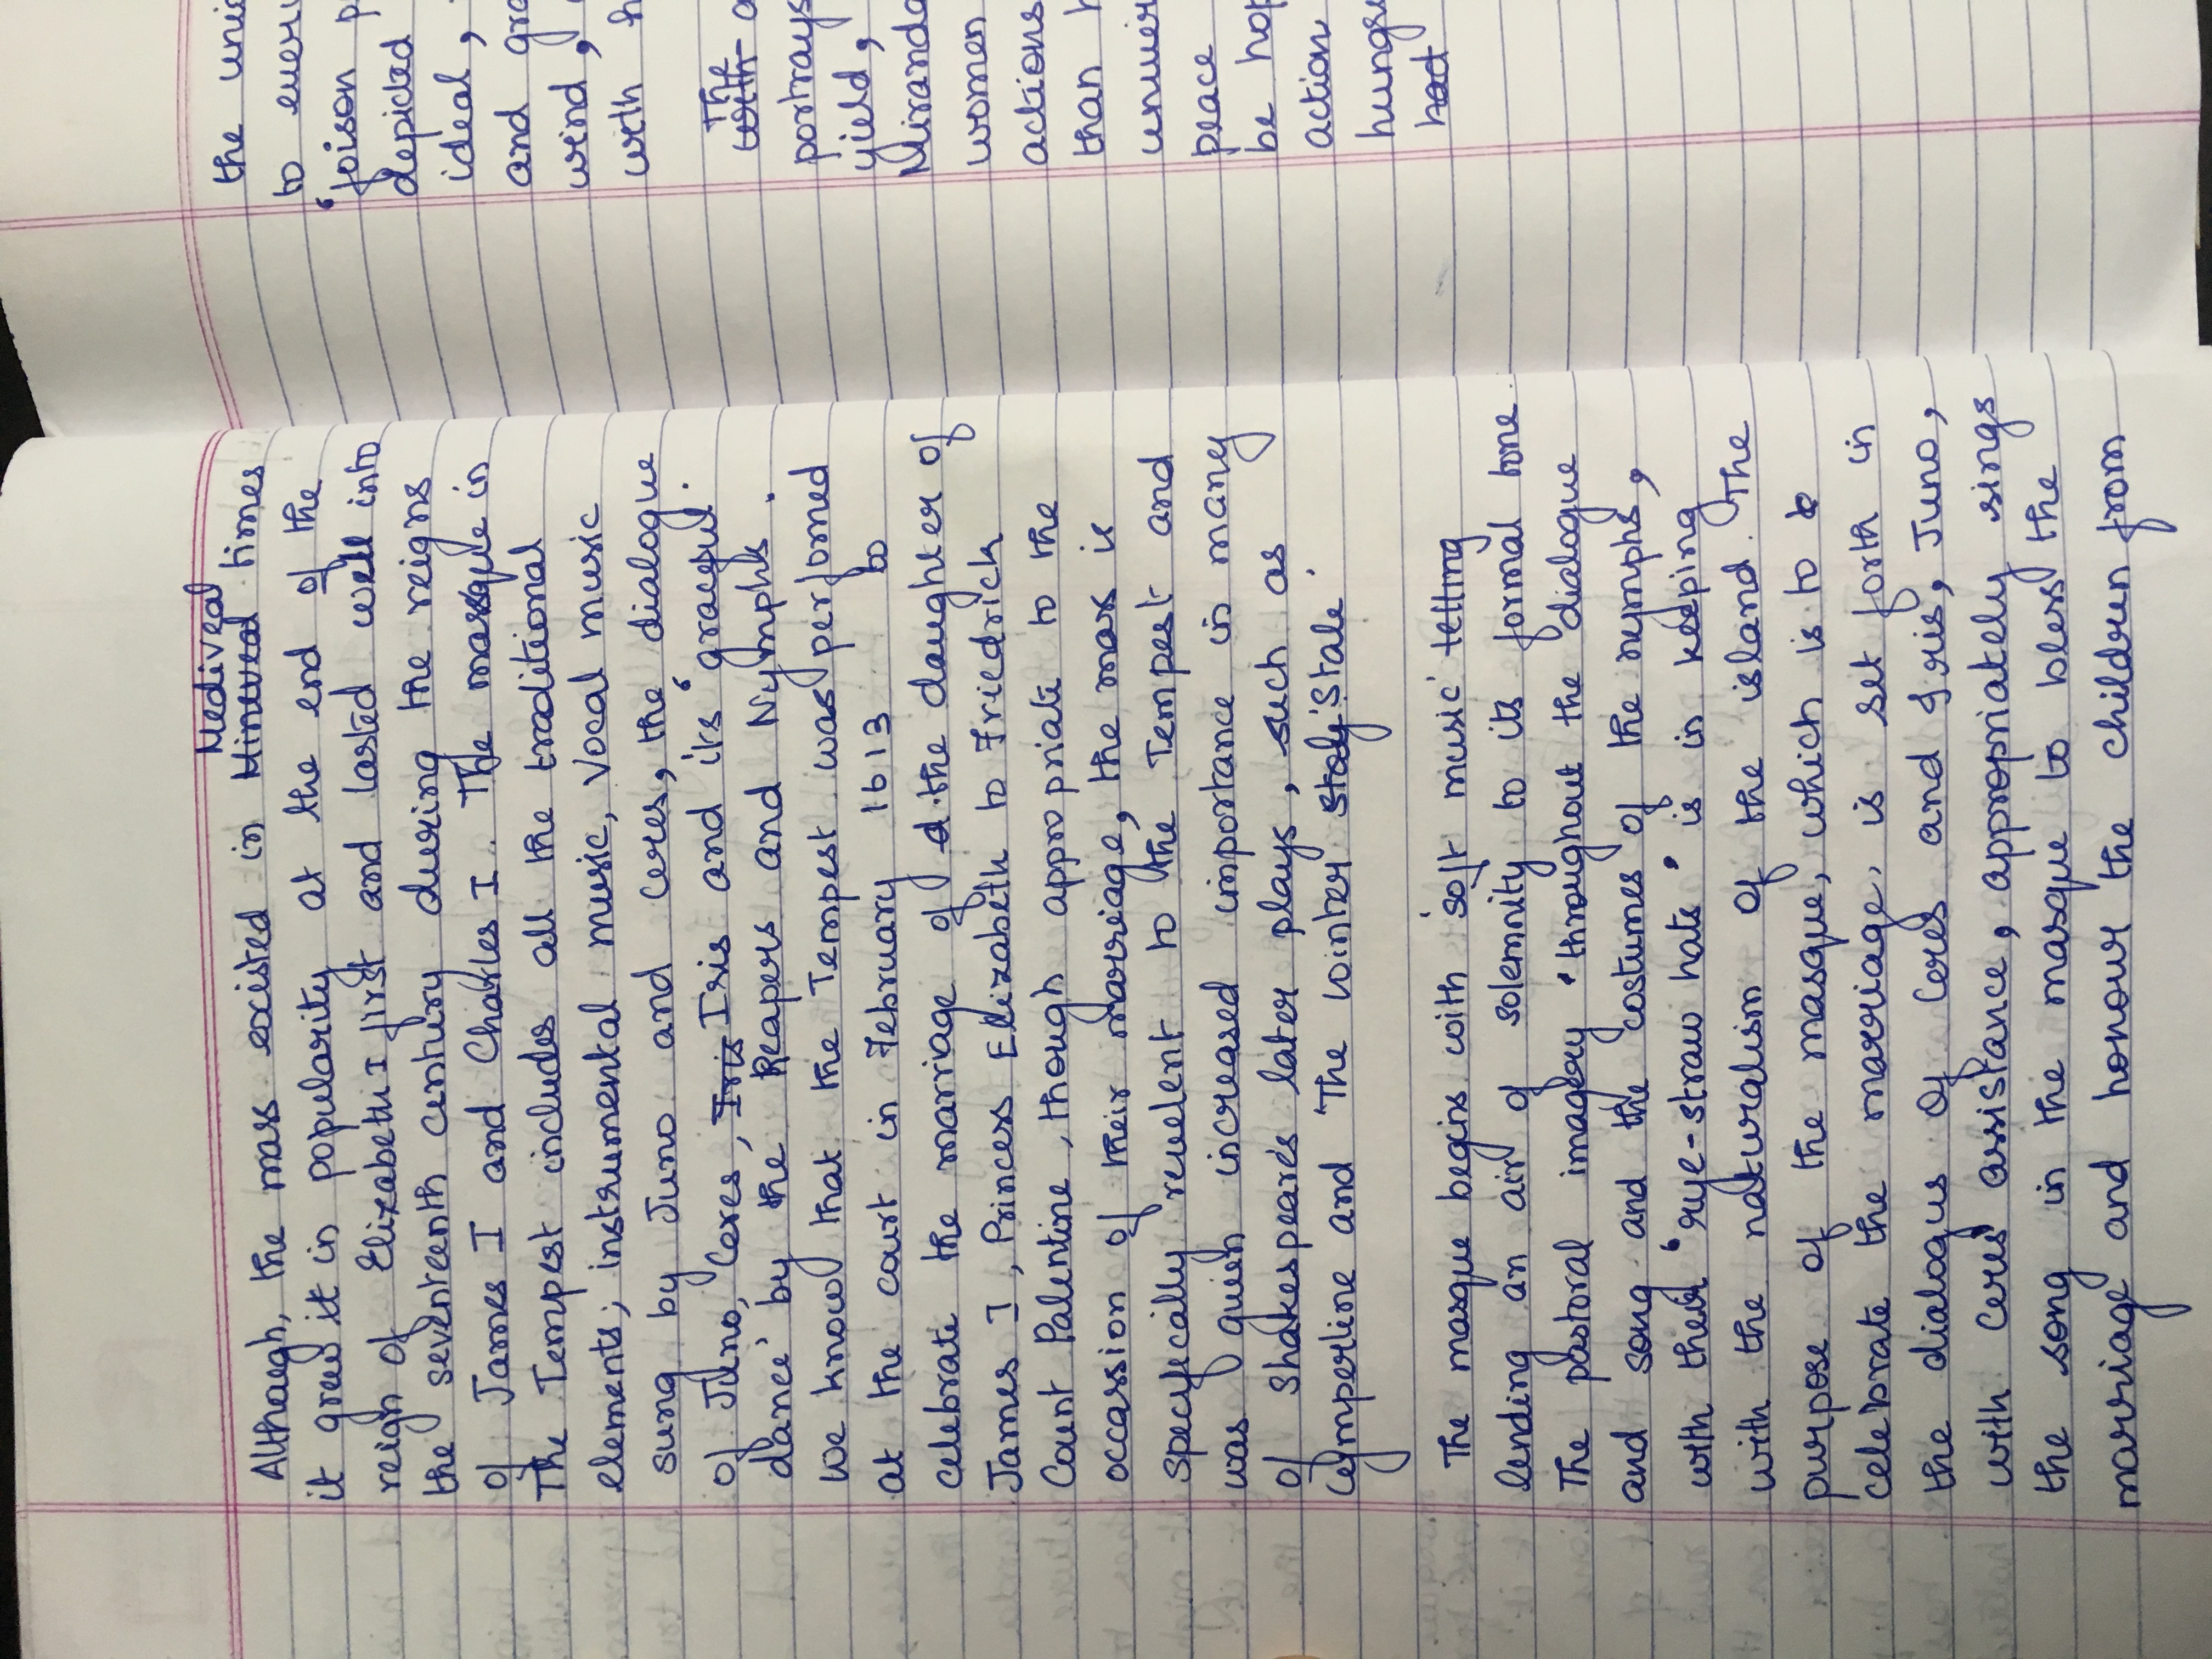 Mediveal
Although, the mass existed in Mineveal times
it grew it in popularity at the end of the
reign of Elizabeth I first and lasted well into
the seventeenth century during the reigns
of James I and Charles I. The masque in
The Tempest includes all the traditional
elements; instrumental music, Vocal music
sung by Juno and Ceres, the dialogue
of Juno, Ceres, Iris Iris and its 'graceful
dance' by the Reapers and Nymphs.
We know that the Tempest was perfomed
at the court in February 1613 to
celebrate the marriage of d the daughter of
James I, Princess Elizabeth to Friedrick
Count Palentine, though appropriate to the
occassion of their marriage, the mass is
specifically revelent to the Tempest and
was given increased importance in many
of Shakespeare's later plays, such as
Cymperline and 'The Winter Staly 'Stale'
The masque begins with 'soft music' telling
lending an air of solemnity to its formal tone.
The pastoral imagery throughout the dialogue
and song and the costumes of the nymphs,
with their 'rye-straw hats' is in keeping
with the naturalism of the island. The
purpose of the masque, which is to b
celebrate the marriage, is set forth in
the dialogus of Ceres and Iris, Juno,
with Ceres' assistance, appropriately sings
the song in the masque to bless the
marriage and honour the children from
the
to
'foison
depicted
ideal,
and
wind,
with
The
with
portrays
yield,
Miranda
women
actions
than
peace
be
action
had